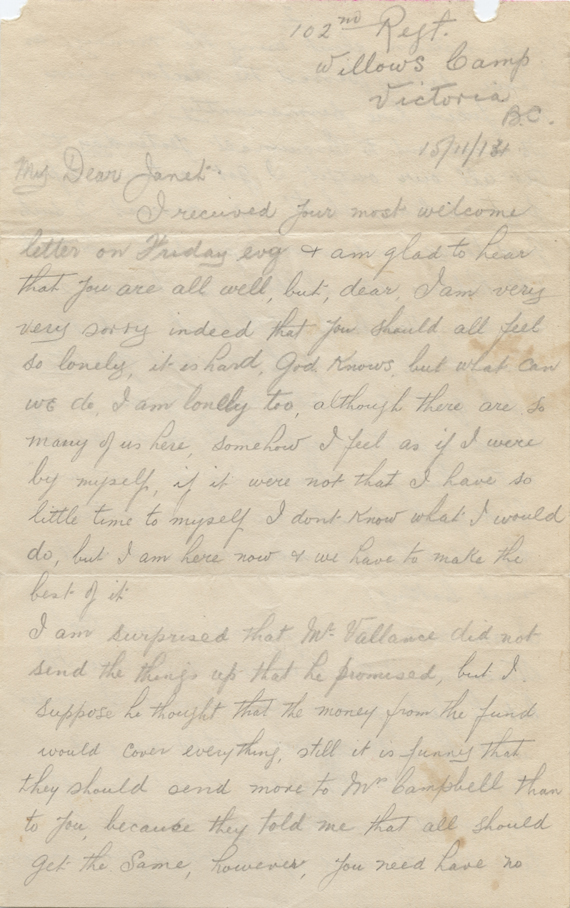 102nd Regt.
Willows Camp
Victoria
B.C.
15/11/
My Dear Janet.
I received your most welcome
letter on Friday evg & am glad to hear
that you are all well, but, dear, I am very
very sorry indeed that you should all feel
so lonely, it is hard, God Knows, but what can
we do, I am lonely too, although there are so
many of us here, somehow I feel as if I were
by myself, if it were not that I have so
little time to myself I dont Know what I would
do, but I am here now & we have to make the
best of it
I am surprised that Mr. Vallance did not
send the things up that he promised, but I
suppose he thought that the money from the fund
would cover everything, still it is funny that
they should send more to Mrs Campbell than
to you, because they told me that all should
get the same, however, you need have no